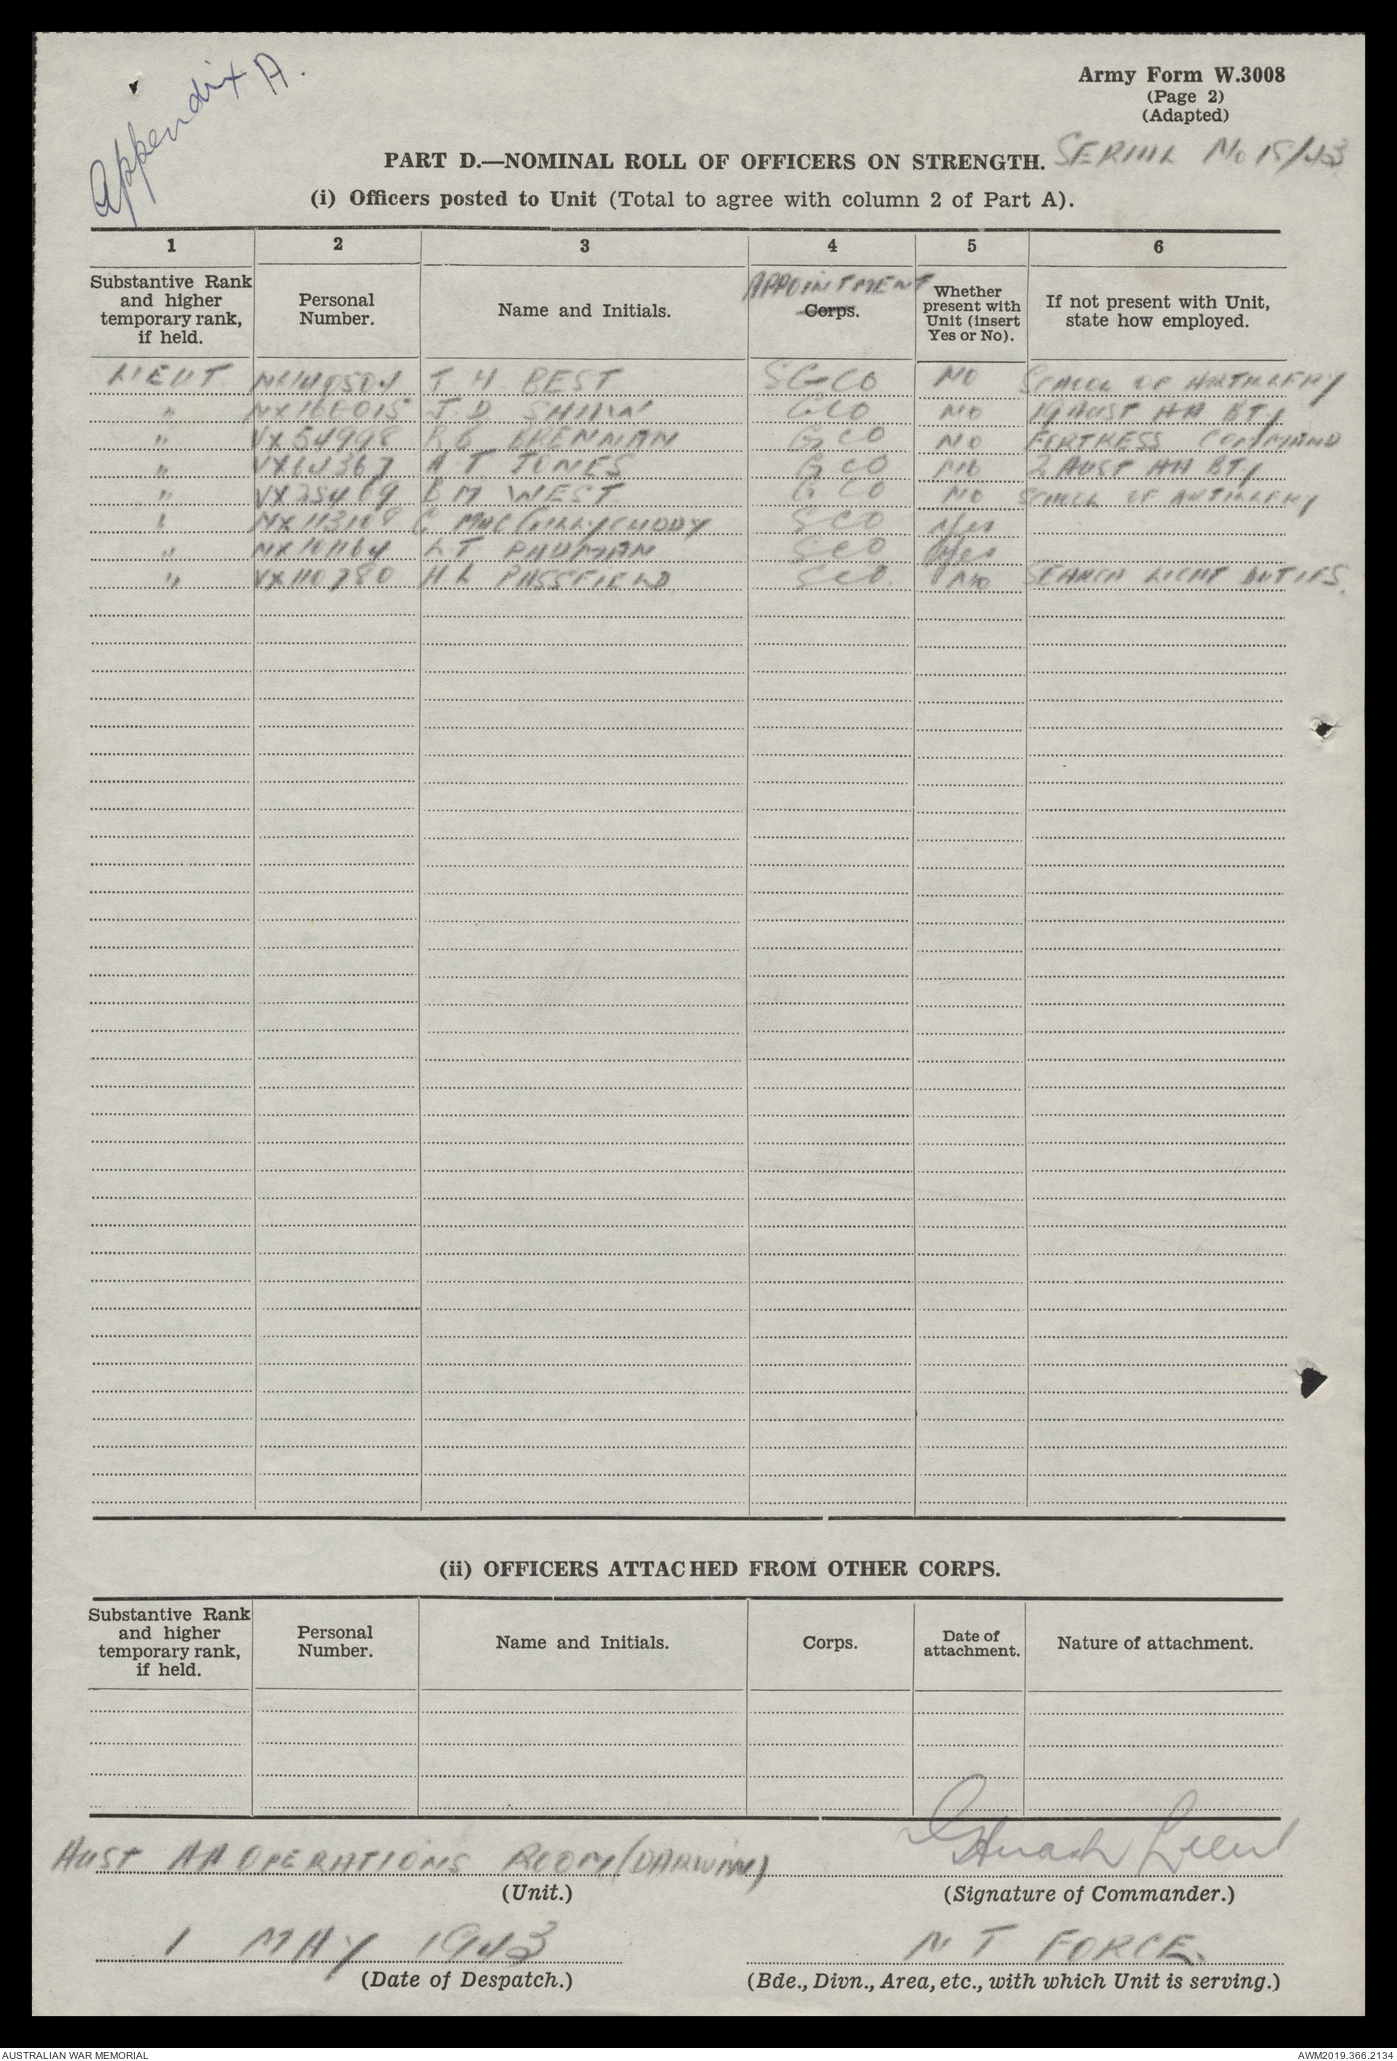 Appendix A.
Army Form W.3008
(Page 2)
(Adapted)
SERIAL No 18/43
PART D.—NOMINAL ROLL OF OFFICERS ON STRENGTH.
(i) Officers posted to Unit (Total to agree with column 2 of Part A).
1 2 3 4 5 6
Substantive Rank and higher temporary rank, if held.
Personal Number.
Name and Initials.
APPOINTMENT
Corps.
Whether present with Unit (insert Yes or No).
If not present with Unit, state how employed.
LIEUT. BEST SGCO NO SCHOOL OF ARTILLERY
" J D SHAW GCO NO 19 AUST AA BTY
" VX54998 BRENNAN GCO NO FORTRESS COMMAND
" A T JONES GCO NO 2 AUST AA BTY
" B M WEST GCO NO SCHOOL OF ARTILLERY
" C SCO Yes
" L T SCO Yes
" VX110780 H L PASSFIELD SCO NO SEARCH LIGHT DUTIES.
(ii) OFFICERS ATTACHED FROM OTHER CORPS.
Substantive Rank and higher temporary rank, if held.
Personal Number.
Name and Initials.
Corps.
Date of attachment.
Nature of attachment.
AUST AA OPERATIONS ROOM (DARWIN)
Lieut
(Unit.)
(Signature of Commander.)
1 MAY 1943
N T FORCE.
(Date of Despatch.)
(Bde., Divn., Area, etc., with which Unit is serving.)
AUSTRALIAN WAR MEMORIAL
AWM2019.366.2134